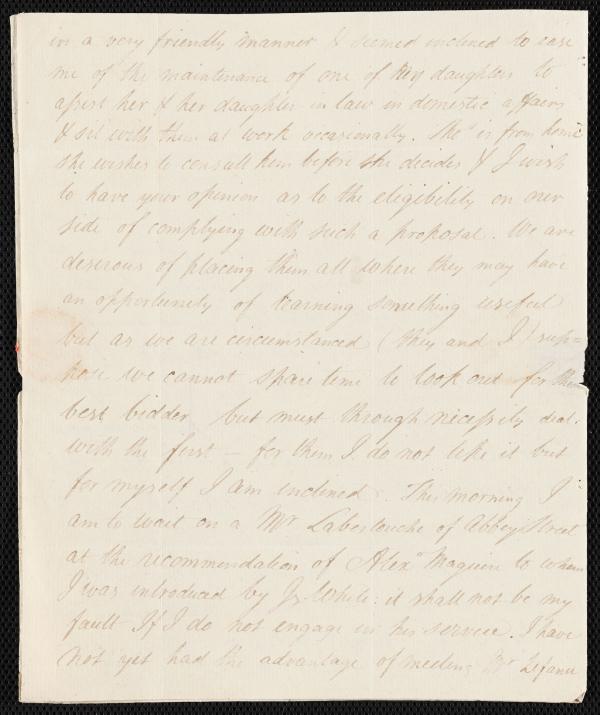 in a very friendly manner & seemed inclined to ease
me of the maintenance of one of my daughters to
assist her & her daughter in law in domestic affairs
& sit with them at work occasionally. The is from home
she wishes to consult him before she decides & I wish
to have your opinion as to the eligibility on our
side of complying with such a proposal. We are
desirous of placing them all where they may have
an opportunity of learning something useful
but as we are circumstanced (they and I) sup=
pose we cannot spare time to look out for the
best bidder but must through necessity deal
with the first — for them I do not like it but
for myself I am inclined. This morning I
am to wait on a Mr Labertouche of Abbey Street
at the recommendation of Alexr Maguire to whom
I was introduced by Js White: it shall not be my
fault If I do not engage in his service. I have
not yet had the advantage of meeting Mr Lefanu